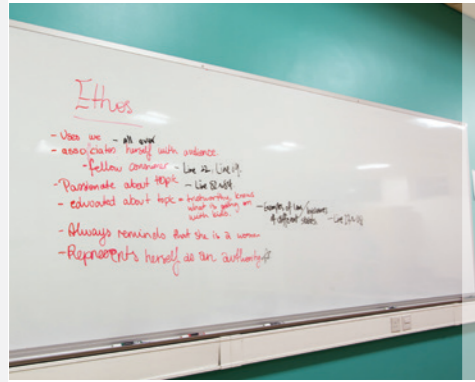 Ethos
- Uses we - all over
- associates herself with audience.
- fellow consumer - Line 22, Line 19.
- Passionate about topic - Line
- educated about topic - trustworthy, knows
what is going on
with kids.
- Examples of
4 different states. - Line
- Always reminds that she is a woman
- Represents herself as an authority